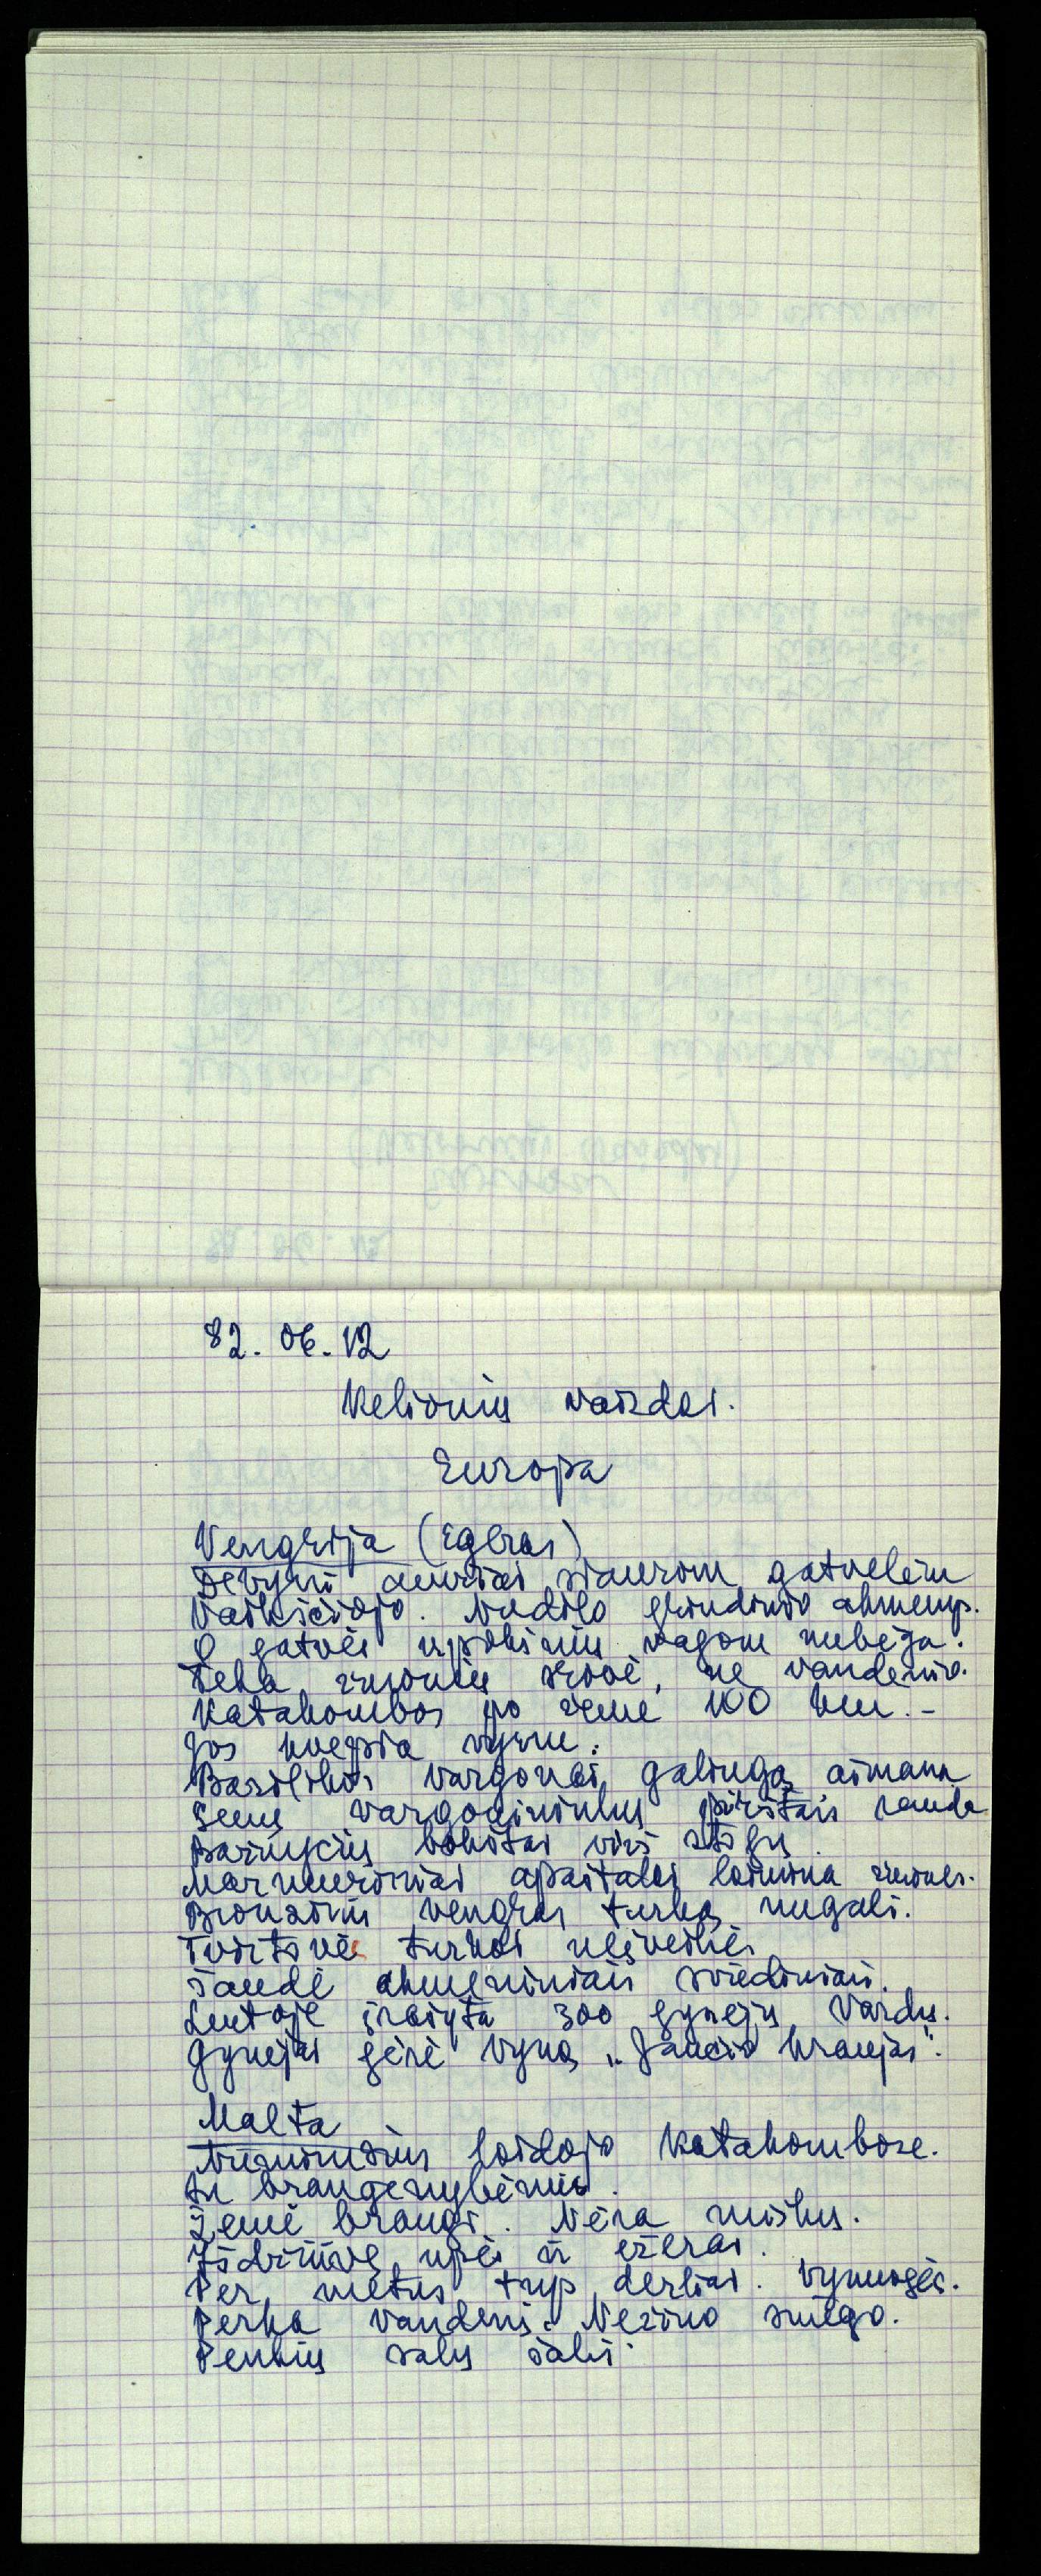 82. 06. 12
Kelionių vaizdai.
Europa
Vengrija (Egeras)
Devyni amžiai siaurom gatvelėm
vaikščiojo. Nudilo grindinio akmenys.
O gatvės upokšnių vagom nubėga.
Teka žmonių srovė, ne vandenio.
Katakombos po žeme 100 km. -
Jos kvepia vynu.
Bazilikos vargonai galinga aimana
Senų vargonininkų pirštais rauda
Bažnyčių bokštai virš stogų.
Marmuriniai apaštalai laimina žmones.
Bronzinis vengras turką nugali.
Tvirtovės turkai neįveikė,
šaudė akmeniniais sviediniais.
Lentoje įrašyta 300 gynėjų vardų.
Gynėjai gėrė vyną „Jaučio kraujas".
Malta
Numirusius laidojo katakombose.
Su brangenybėmis.
Žemė brangi. Nėra miškų.
Išdžiūvę upės ir ežerai.
Per metus trys derliai. Vynuogės.
Perka vandenį. Nežino sniego.
Penkių salų šalis